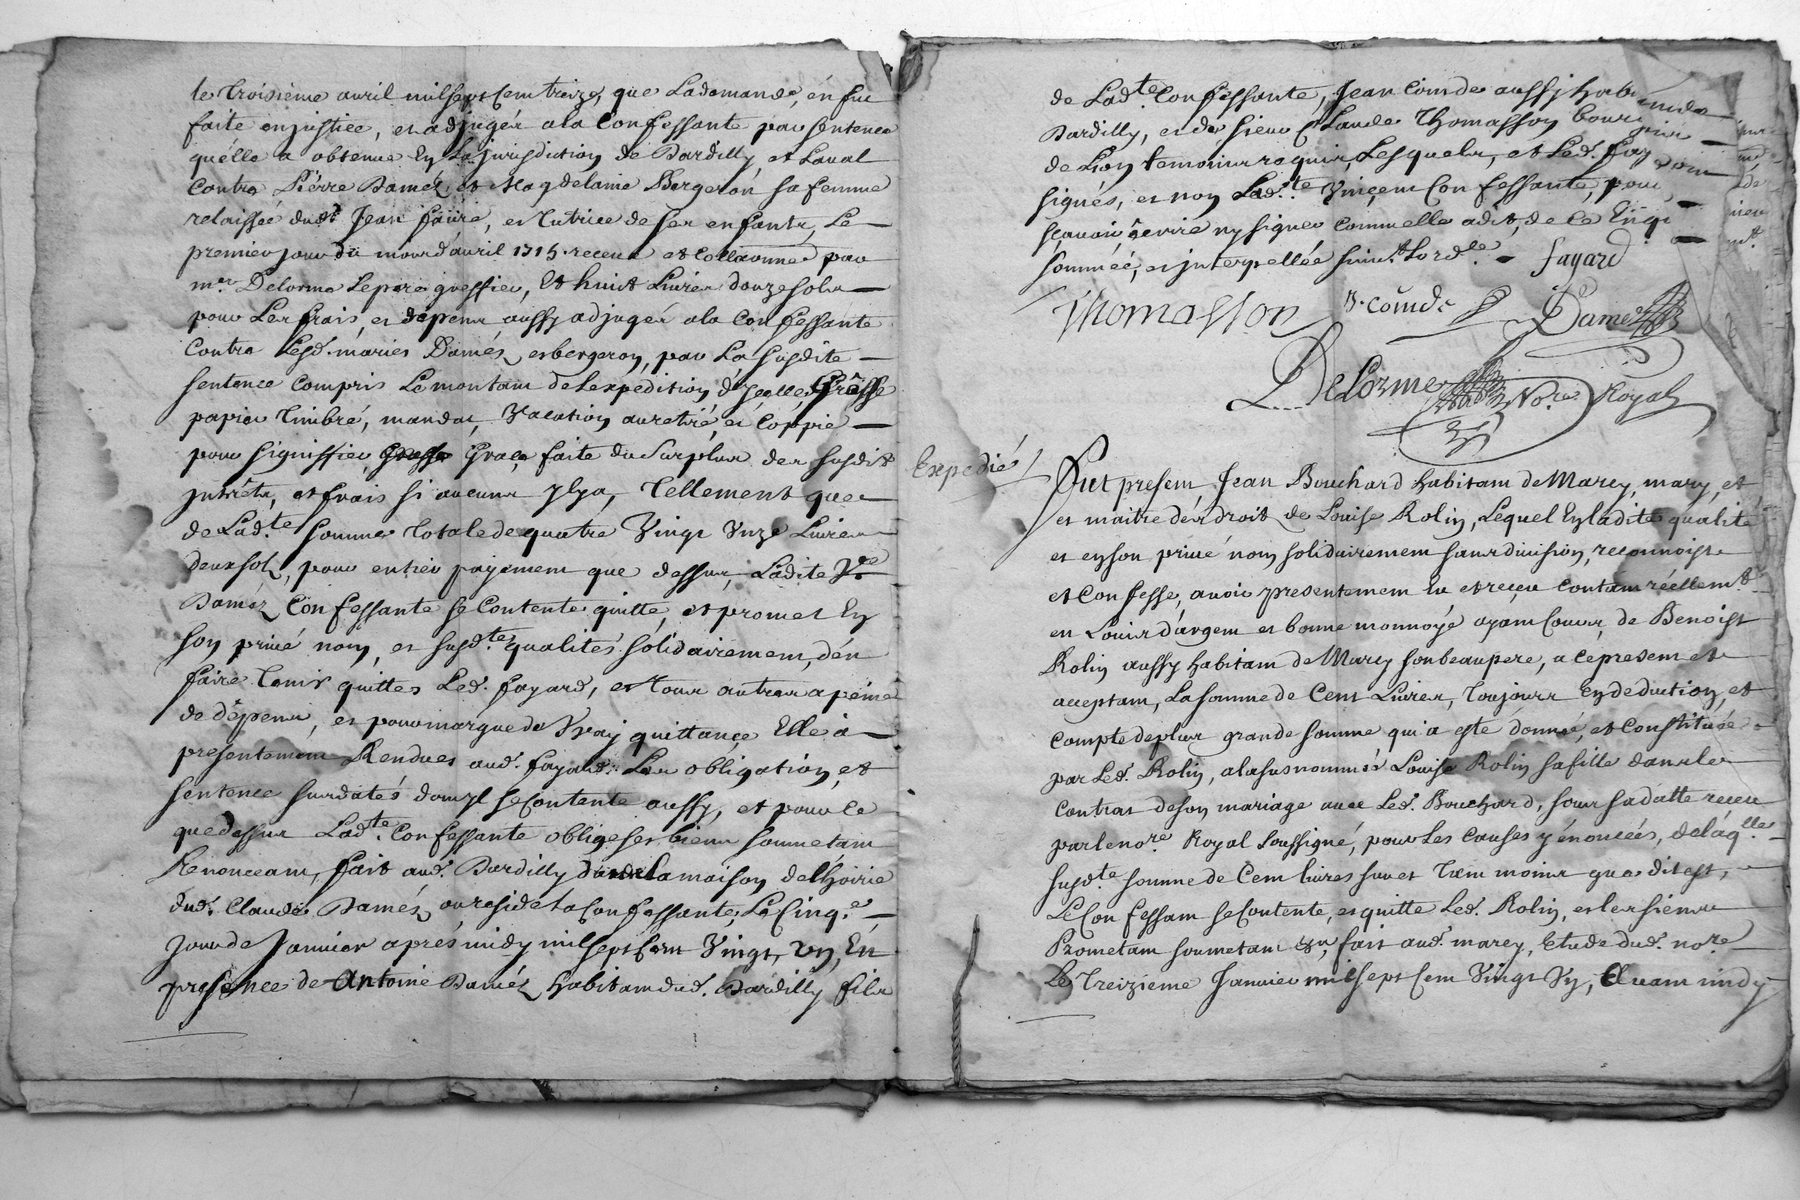 le Troisième avril mil sept Cem treize, que La demande, en fut
faite en justice, et adjugée a la Confessante par sentence
qu'elle a obtenue En La jurisdiction de Dardilly, et Laval
Contre Piérre Daméz et Magdelaine Bergeron sa femme
relaissée dudt Jean faure, et Tutrice de ses enfants, Le
premier jour du mois d'avril 1715. receue et collaonnée par
mre Delorme Lepere greffier, Et huit Livres douze sols
pour Les frais, et dépens aussy adjugés a la Confessante
Contre Lesd. mariés Daméz, et bergeron, par La susdite
sentence compris Le montant de Lexpédition d'jcelle, Grosse
papier Timbré, mandat, Vacation au retiré, et Coppie
pour signiffier, Grace faite du Surplus des susdits
jnterêts, et frais si aucuns jlya, Tellement que
de Ladte somme Totale de quatre Vingt Unze Livres
deux sols, pour entier payement que dessus, Ladite Vve
Daméz Confessante se Contente quitte, et promet En
son privé nom, et susdtes qualités solidairement, d'en
faire Tenir quittes Led. fayard, et tous autres a peine
de dépens, et pour marque de Vray quittance Elle a
presentement Rendues aud. fayard Les obligation, et
sentence susdatés dont jl se Contente aussy, et pour ce
que dessus Ladte Confessante oblige ses biens soumetant
Renonceant, fait aud. Dardilly dans la maison de l'hoirie
dud. Claude Daméz ou reside La Confessante, Le Cinqe
jour de Janvier après midy mil sept Cem Vingt, Un, En
presence de Antoine Daméz habitam dud. Dardilly fils
de Ladte Confessante, Jean Coinde aussy habitam de
Dardilly, et de sieur Claude Thomasson bourgeois
de Lion temoins requis, Lesquels, et Led. fayard ont
signés, et non Ladte Vinçent Confessante, pour
sçavoir écrire ny signer comm'elle a dit, de ce Enqui
sommée, et jnterpellée suivt Lordce fayard
Thomasson J. Coinde Damez
DeLorme Nore Royal
Expedié
Fut presem Jean Bouchard habitam de Marcy, mary, et
et maitre des droits de Louise Rolin, Lequel En ladite qualité
et en son privé nom solidairement sans division, reconnoist
et Confesse, avoir presentement eu et reçeu contam réellemt
en Louis d'argent et bonne monnoye ayam Cours, de Benoist
Rolin aussy habitam de Marcy son beaupere, a ce presem et
acceptam, La somme de Cent Livres, Toujours En déduction, et
compte de plus grande somme qui a esté donnée, et Constituée
par Led. Rolin, a la susnommée Louise Rolin sa fille dans le
Contrat de son mariage avec Led. Bouchard, sous sa datte receu
par le nore Royal soussigné, pour les causes y énoncées, de laqlle
susdte somme de Cem livres sur et Tam moins que dit est,
Le Confessam se Contente, et quitte Led. Rolin, et les siens
Prometam soumetam &a, fait aud. marcy, Etude dud. nore
Le Treizieme Janvier mil sept Cem Vingt Un, Avant midy